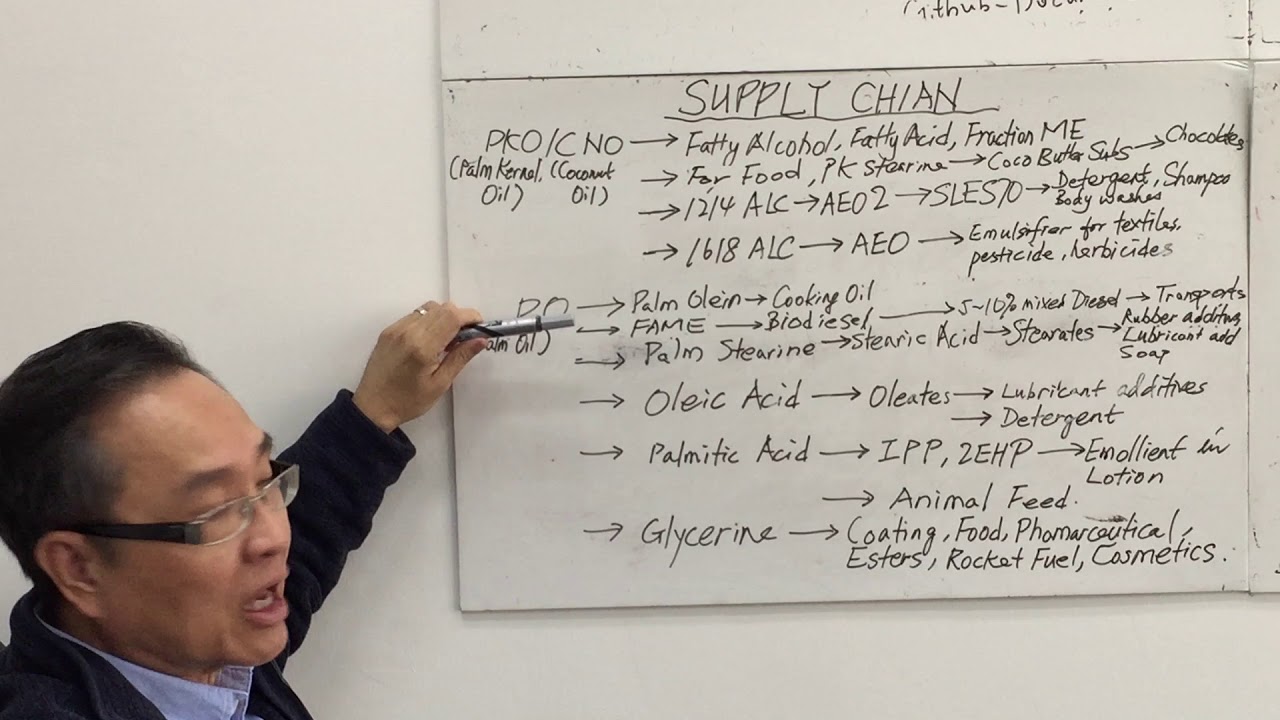 Github-
SUPPLY CHIAN
PKO/CNO → Fatty Alcohol, Fatty Acid, Fraction ME
(Palm Kernel, (Coconut → For Food, PK Stearine → Coco Butter Subs → Chocolates
Oil) Oil) → 1214 ALC → AEO2 → SLES70 → Detergent, Shampoo
Body washes
→ 1618 ALC → AEO → Emulsifier for textiles,
pesticide, herbicides
PO → Palm Olein → Cooking Oil
→ FAME → Biodiesel → 5~10% mixed Diesel → Transports
alm Oil) → Palm Stearine → Stearic Acid → Stearates → Rubber additivs
Lubricant add
Soap
→ Oleic Acid → Oleates → Lubricant additives
→ Detergent
→ Palmitic Acid → IPP, 2EHP → Emollient in
Lotion
→ Animal Feed.
→ Glycerine → Coating, Food, Phamarceutical,
Esters, Rocket Fuel, Cosmetics.